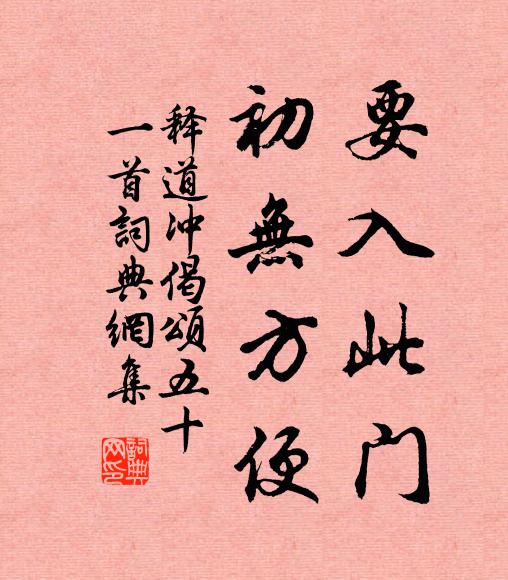 要入此门
初無方便
释道冲偈頌五十
一首詞典網集
詞典
网印